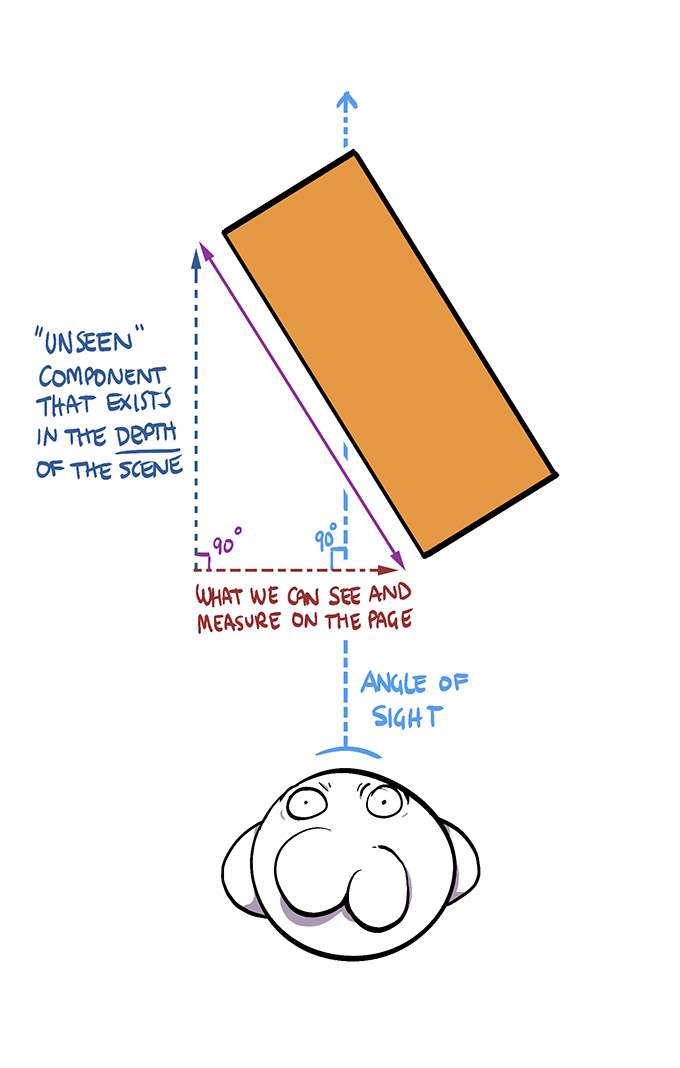 "UNSEEN"
COMPONENT
THAT EXISTS
IN THE DEPTH
OF THE SCENE
90°
90°
WHAT WE CAN SEE AND
MEASURE ON THE PAGE
ANGLE OF
SIGHT